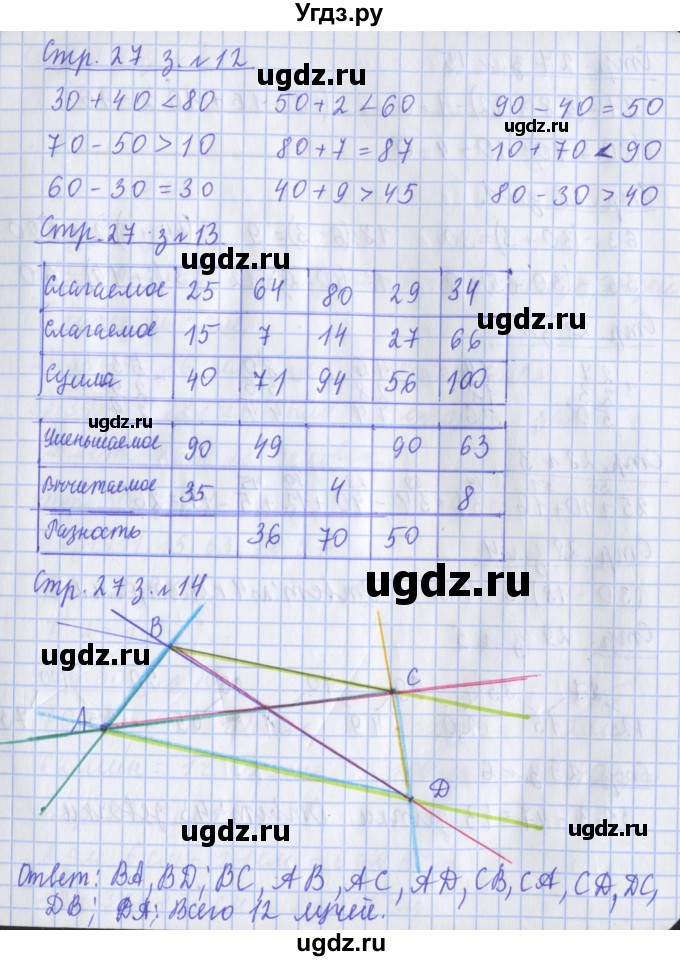 Угдз.ру
Стр. 27 з. №12
30 + 40 < 80 50 + 2 < 60 90 - 40 = 50
70 - 50 > 10 80 + 7 = 87 10 + 70 < 90
60 - 30 = 30 40 + 9 > 45 80 - 30 > 40
Стр. 27 з №13
Слагаемое 25 64 80 29 34
Слагаемое 15 7 14 27 66
Сумма 40 71 94 56 100
Уменьшаемое 90 49 90 63
Вычитаемое 35 4 8
Разность 36 70 50
Стр. 27 з. №14
B
C
A
D
Ответ: BA, BD; BC, AB, AC, AD, CB, CA, CD, DC,
DB; DA; Всего 12 лучей.
ugdz.ru
ugdz.ru
ugdz.ru
ugdz.ru
ugdz.ru
ugdz.ru
ugdz.ru
ugdz.ru
ugdz.ru
ugdz.ru
ugdz.ru
ugdz.ru
ugdz.ru